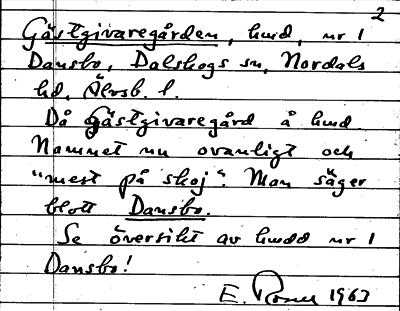 2
Gästgivaregården, hmd, nr 1
Dansbo, Dalskogs sn, Nordals
hd, Älvsb. l.
Då gästgivaregård å hmd.
Namnet nu ovanligt och
"mest på skoj". Man säger
blott Dansbo.
Se översikt av hmdd nr 1
Dansbo!
E. 1963